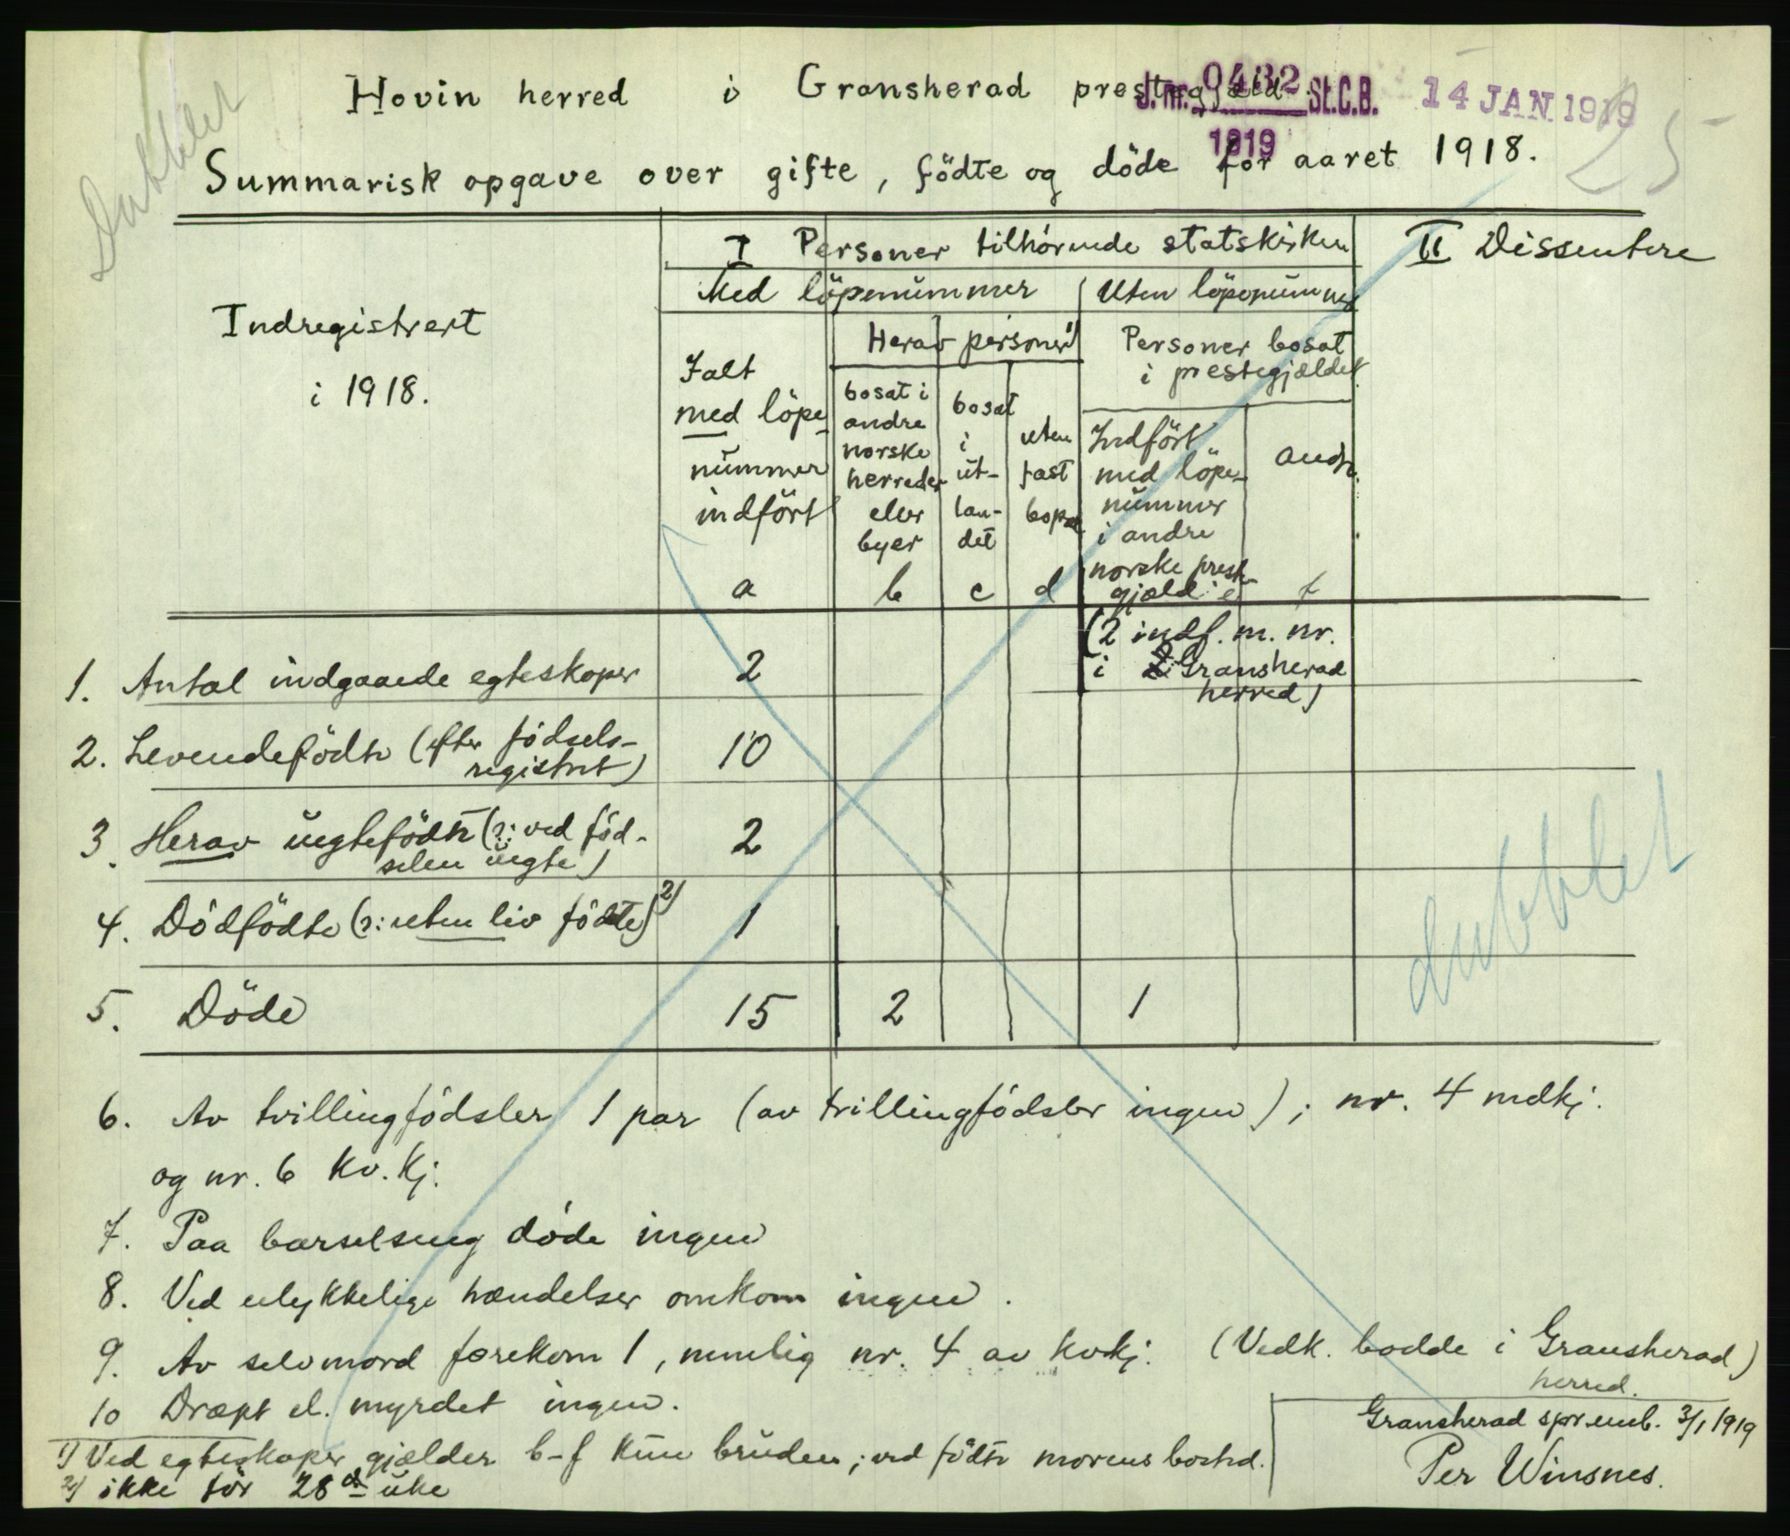 Hovin herred i Gransherad prestegjeld.
J.nr. 0432 St.C.B. 14 JAN 1919
1919
25
Dubblet
Summarisk opgave over gifte, födte og döde for aaret 1918.
Indregistrert
i 1918.
I Personer tilhörende statskirken
II Dissentere
Med löpenummer
Uten löpenummer
Herav personer 1)
Personer bosat
i prestegjældet
Ialt
med löpe-
nummer
indfört
a
bosat i
andre
norske
herreder
eller
byer
b
bosat
i
ut-
lan-
det
c
uten
fast
bopæl
d
Indfört
med löpe-
nummer
i andre
norske preste-
gjæld e
andre
f
1. Antal indgaaede egteskaper 2 (2 indf. m. nr.
i Gransherad
herred)
2. Levendefödte (efter födsels-
registret) 10
3. Herav uegtefödte (ɔ: ved föd-
selen uegte) 2
4. Dödfödte (ɔ: uten liv födte) 2) 1
5. Döde 15 2 1
dubblet
6. Av tvillingfödsler 1 par (av trillingfödsler ingen); nr. 4 mdkj.
og nr. 6 kv.kj.
7. Paa barselseng döde ingen
8. Ved ulykkelige hændelser omkom ingen.
9. Av selvmord forekom 1, nemlig nr. 4 av kvkj. (Vedk. bodde i Gransherad)
herred.
10 Dræpt el. myrdet ingen.
Gransherad spr.emb. 3/1 1919
Per Winsnes.
1) Ved egteskaper gjælder b-f kun bruden; ved födte morens bosted.
2) ikke för 28de uke